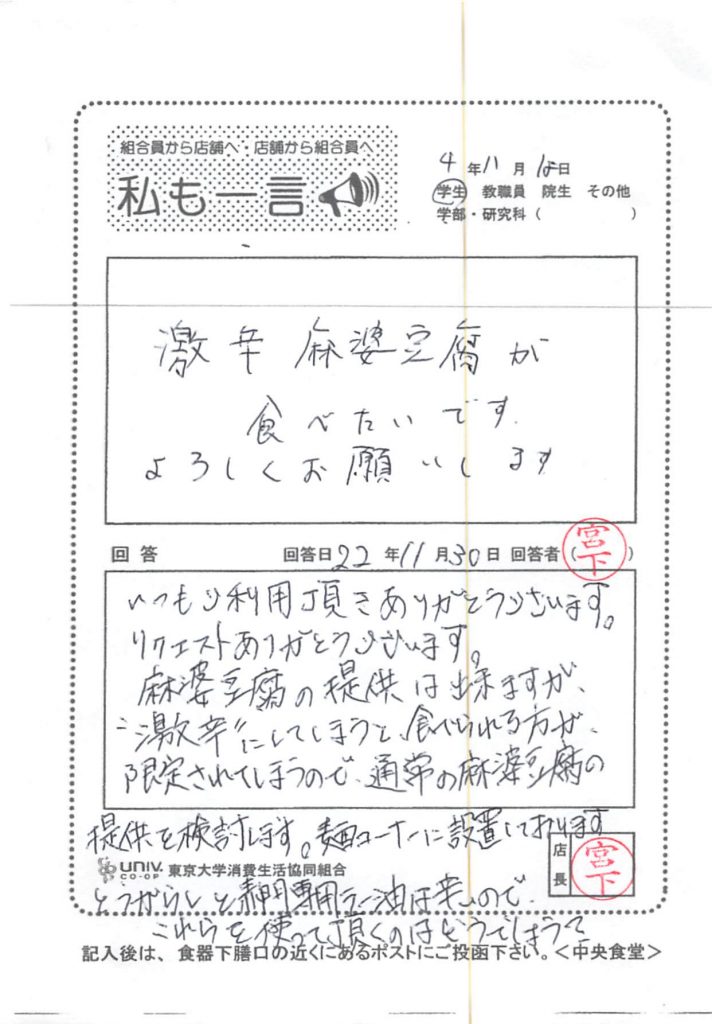 組合員から店舗へ・店舗から組合員へ
私も一言
4年11月12日
学生 教職員 院生 その他
学部・研究科（　　　）
激辛麻婆豆腐が
食べたいです
よろしくお願いします
回答 回答日22年11月30日 回答者（宮下）
いつもご利用頂きありがとうございます。
リクエストありがとうございます。
麻婆豆腐の提供は出来ますが、
"激辛"にしてしまうと、食べられる方が、
限定されてしまうので、通常の麻婆豆腐の
提供を検討します。麺コーナーに設置しております
店長 宮下
UNIV. CO-OP 東京大学消費生活協同組合
とうがらしと赤門専用ラー油は辛いので、
これらを使って頂くのはどうでしょうで
記入後は、食器下膳口の近くにあるポストにご投函下さい。＜中央食堂＞